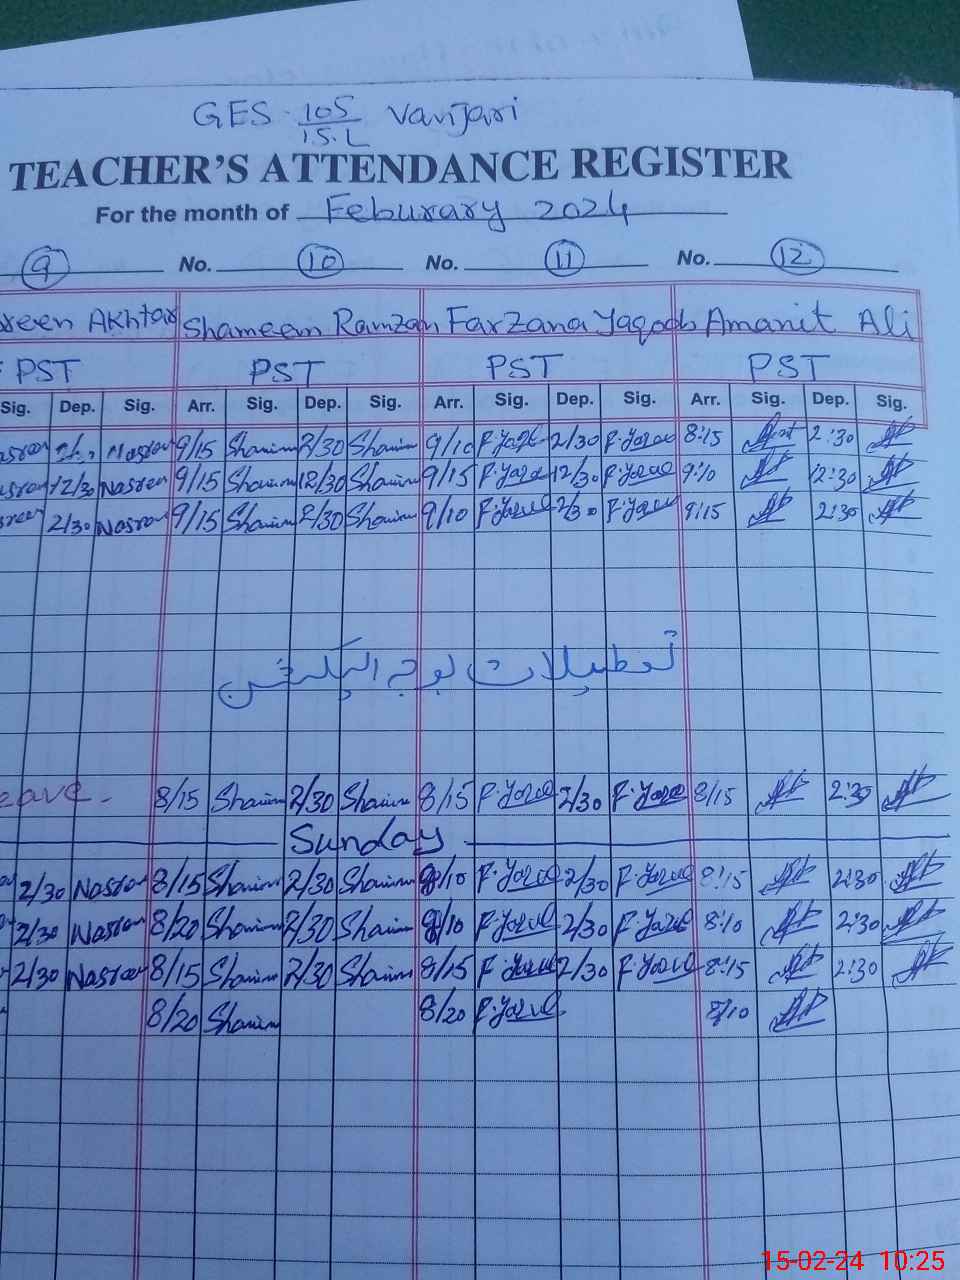 GES 105/15.L Vanjari
TEACHER'S ATTENDANCE REGISTER
For the month of Feburary 2024
9 No. 10 No. 11 No. 12
reen Akhtar Shameem Ramzan Farzana Yaqoob Amanit Ali
PST PST PST PST
Sig. Dep. Sig. Arr. Sig. Dep. Sig. Arr. Sig. Dep. Sig. Arr. Sig. Dep. Sig.
Nasreen 9/15 Shamim 2/30 Shamim 9/10 2/30 8:15 2:30
12/30 Nasreen 9/15 Shamim 12/30 Shamim 9/15 12/30 9:10 12:30
2/30 Nasreen 9/15 Shamim 2/30 Shamim 9/10 2/30 9:15 2:30
تعطیلات بوجہ الیکشن
eave. 8/15 Shamim 2/30 Shamim 8/15 2/30 8/15 2:30
Sunday
2/30 Nasreen 8/15 Shamim 2/30 Shamim 8/10 2/30 8:15 2:30
2/30 Nasreen 8/20 Shamim 2/30 Shamim 8/10 2/30 8:10 2:30
2/30 Nasreen 8/15 Shamim 2/30 Shamim 8/15 2/30 8:15 2:30
8/20 Shamim 8/20 8/10
15-02-24 10:25